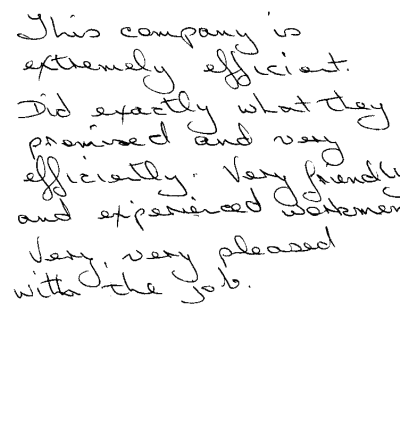 This company is
extremely efficient.
Did exactly what they
promised and very
efficiently. Very friendly
and experienced workmen
Very, very pleased
with the job.